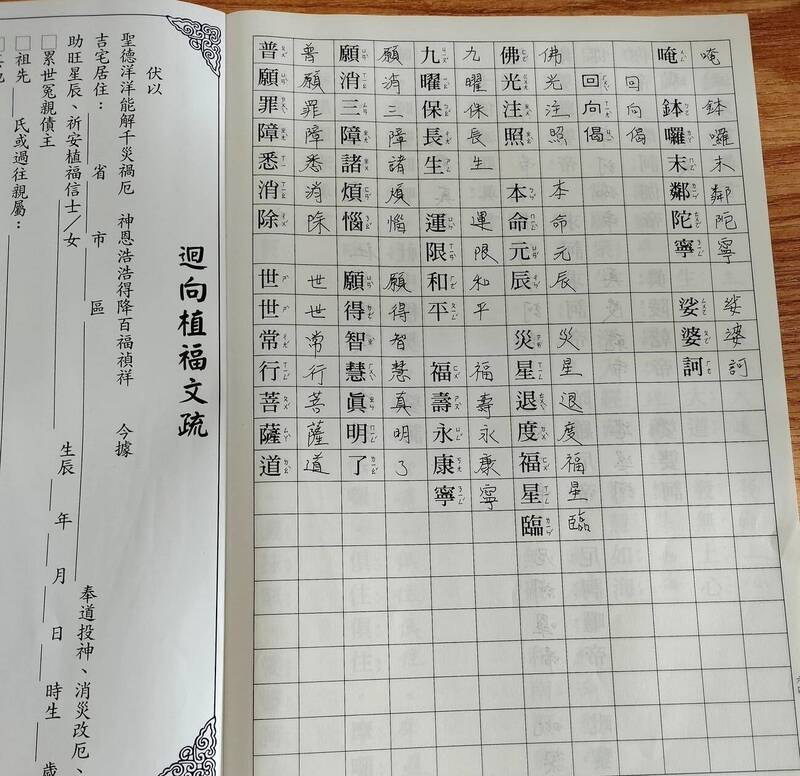 唵 鉢囉末鄰陀寧 娑婆訶
唵 鉢囉末鄰陀寧 娑婆訶
回向偈
回向偈
佛光注照 本命元辰 災星退度福星臨
佛光注照 本命元辰 災星退度福星臨
九曜保長生 運限和平 福壽永康寧
九曜保長生 運限和平 福壽永康寧
願消三障諸煩惱 願得智慧眞明了
願消三障諸煩惱 願得智慧真明了
普願罪障悉消除 世世常行菩薩道
普願罪障悉消除 世世常行菩薩道
迴向植福文疏
伏以
聖德洋洋能解千災禍厄 神恩浩浩得降百福禎祥 今據
吉宅居住: 省 市 區 奉道投神、消災改厄、
助旺星辰、祈安植福信士/女 生辰 年 月 日 時生 歲
□累世冤親債主
□祖先 氏或過往親屬: